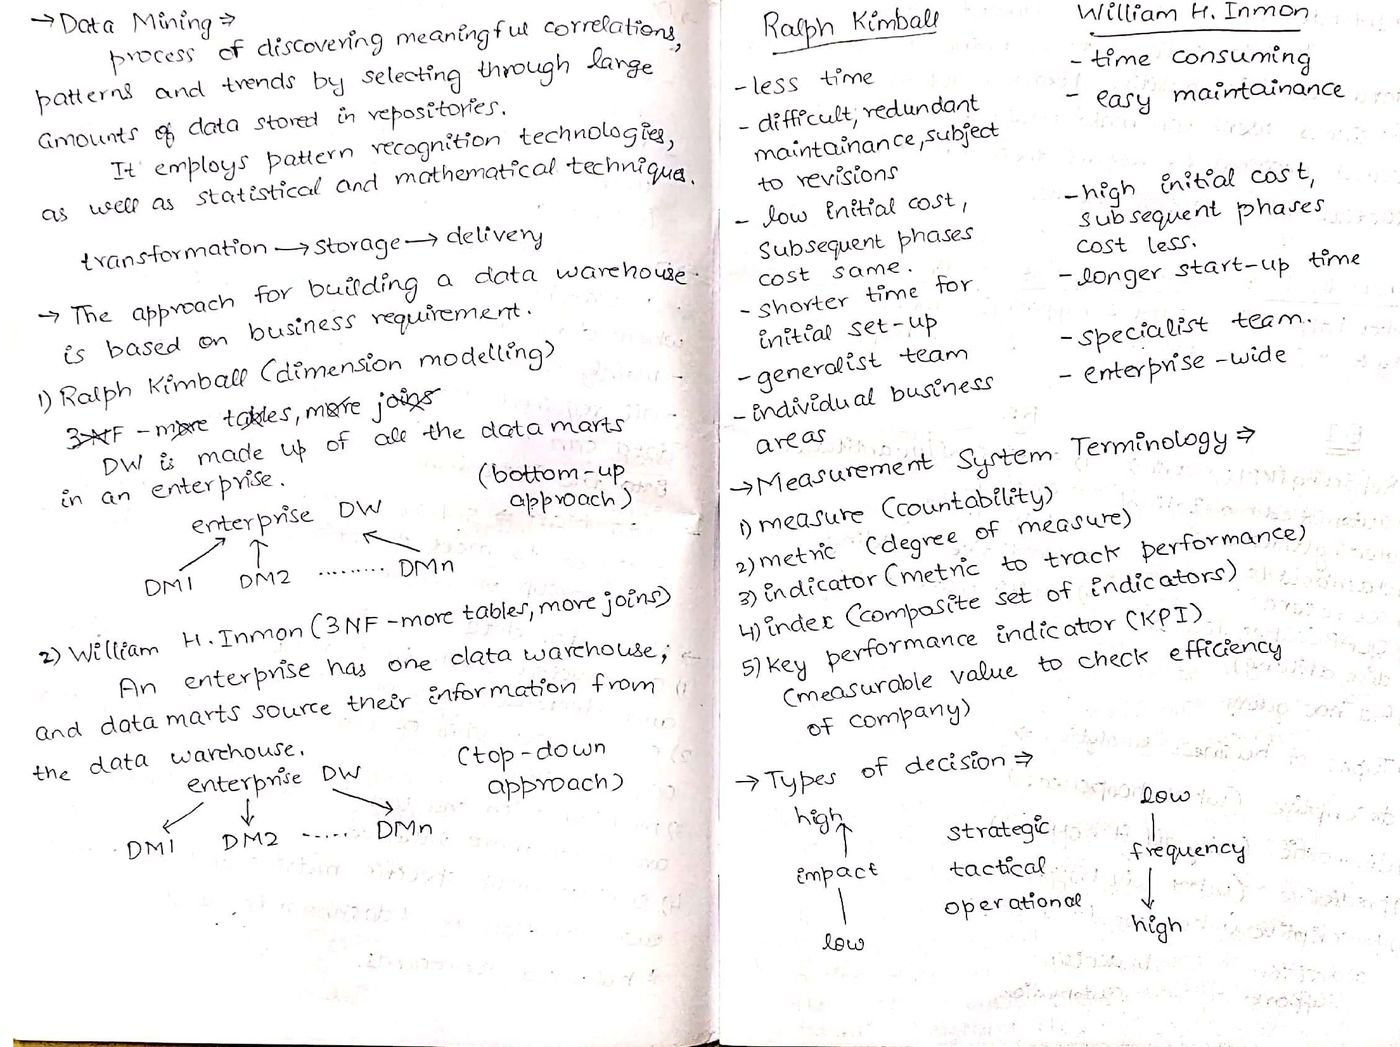 → Data Mining ⇒
process of discovering meaningful correlations,
patterns and trends by selecting through large
amounts of data stored in repositories.
It employs pattern recognition technologies,
as well as statistical and mathematical techniques.
transformation → storage → delivery
→ The approach for building a data warehouse
is based on business requirement.
1) Ralph Kimball (dimension modelling)
3NF - more tables, more joins
DW is made up of all the data marts
in an enterprise.
(bottom-up
approach)
enterprise DW
DM1 DM2 ......... DMn
2) William H. Inmon (3NF - more tables, more joins)
An enterprise has one data warehouse,
and data marts source their information from
the data warehouse.
(top-down
approach)
enterprise DW
DM1 DM2 ...... DMn
Ralph Kimball
- less time
- difficult, redundant
maintainance, subject
to revisions
- low initial cost,
subsequent phases
cost same.
- shorter time for
initial set-up
- generalist team
- individual business
areas
William H. Inmon
- time consuming
- easy maintainance
- high initial cost,
subsequent phases
cost less.
- longer start-up time
- specialist team.
- enterprise-wide
→ Measurement System Terminology ⇒
1) measure (countability)
2) metric (degree of measure)
3) indicator (metric to track performance)
4) index (composite set of indicators)
5) key performance indicator (KPI)
(measurable value to check efficiency
of company)
→ Types of decision ⇒
high
impact
low
strategic
tactical
operational
low
frequency
high